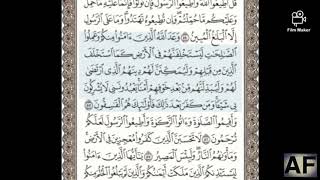 قُلْ أَطِيعُوا۟ ٱللَّهَ وَأَطِيعُوا۟ ٱلرَّسُولَ فَإِن تَوَلَّوْا۟ فَإِنَّمَا عَلَيْهِ مَا حُمِّلَ
وَعَلَيْكُم مَّا حُمِّلْتُمْ وَإِن تُطِيعُوهُ تَهْتَدُوا۟ وَمَا عَلَى ٱلرَّسُولِ
إِلَّا ٱلْبَلَٰغُ ٱلْمُبِينُ ٥٤ وَعَدَ ٱللَّهُ ٱلَّذِينَ ءَامَنُوا۟ مِنكُمْ وَعَمِلُوا۟
ٱلصَّٰلِحَٰتِ لَيَسْتَخْلِفَنَّهُمْ فِى ٱلْأَرْضِ كَمَا ٱسْتَخْلَفَ
ٱلَّذِينَ مِن قَبْلِهِمْ وَلَيُمَكِّنَنَّ لَهُمْ دِينَهُمُ ٱلَّذِى ٱرْتَضَىٰ
لَهُمْ وَلَيُبَدِّلَنَّهُم مِّنۢ بَعْدِ خَوْفِهِمْ أَمْنًا يَعْبُدُونَنِى لَا يُشْرِكُونَ
بِى شَيْـًٔا وَمَن كَفَرَ بَعْدَ ذَٰلِكَ فَأُو۟لَٰٓئِكَ هُمُ ٱلْفَٰسِقُونَ ٥٥
وَأَقِيمُوا۟ ٱلصَّلَوٰةَ وَءَاتُوا۟ ٱلزَّكَوٰةَ وَأَطِيعُوا۟ ٱلرَّسُولَ لَعَلَّكُمْ
تُرْحَمُونَ ٥٦ لَا تَحْسَبَنَّ ٱلَّذِينَ كَفَرُوا۟ مُعْجِزِينَ فِى ٱلْأَرْضِ
وَمَأْوَىٰهُمُ ٱلنَّارُ وَلَبِئْسَ ٱلْمَصِيرُ ٥٧ يَٰٓأَيُّهَا ٱلَّذِينَ ءَامَنُوا۟
لِيَسْتَـْٔذِنكُمُ ٱلَّذِينَ مَلَكَتْ أَيْمَٰنُكُمْ وَٱلَّذِينَ لَمْ يَبْلُغُوا۟ ٱلْحُلُمَ مِنكُمْ
Film Maker
AF